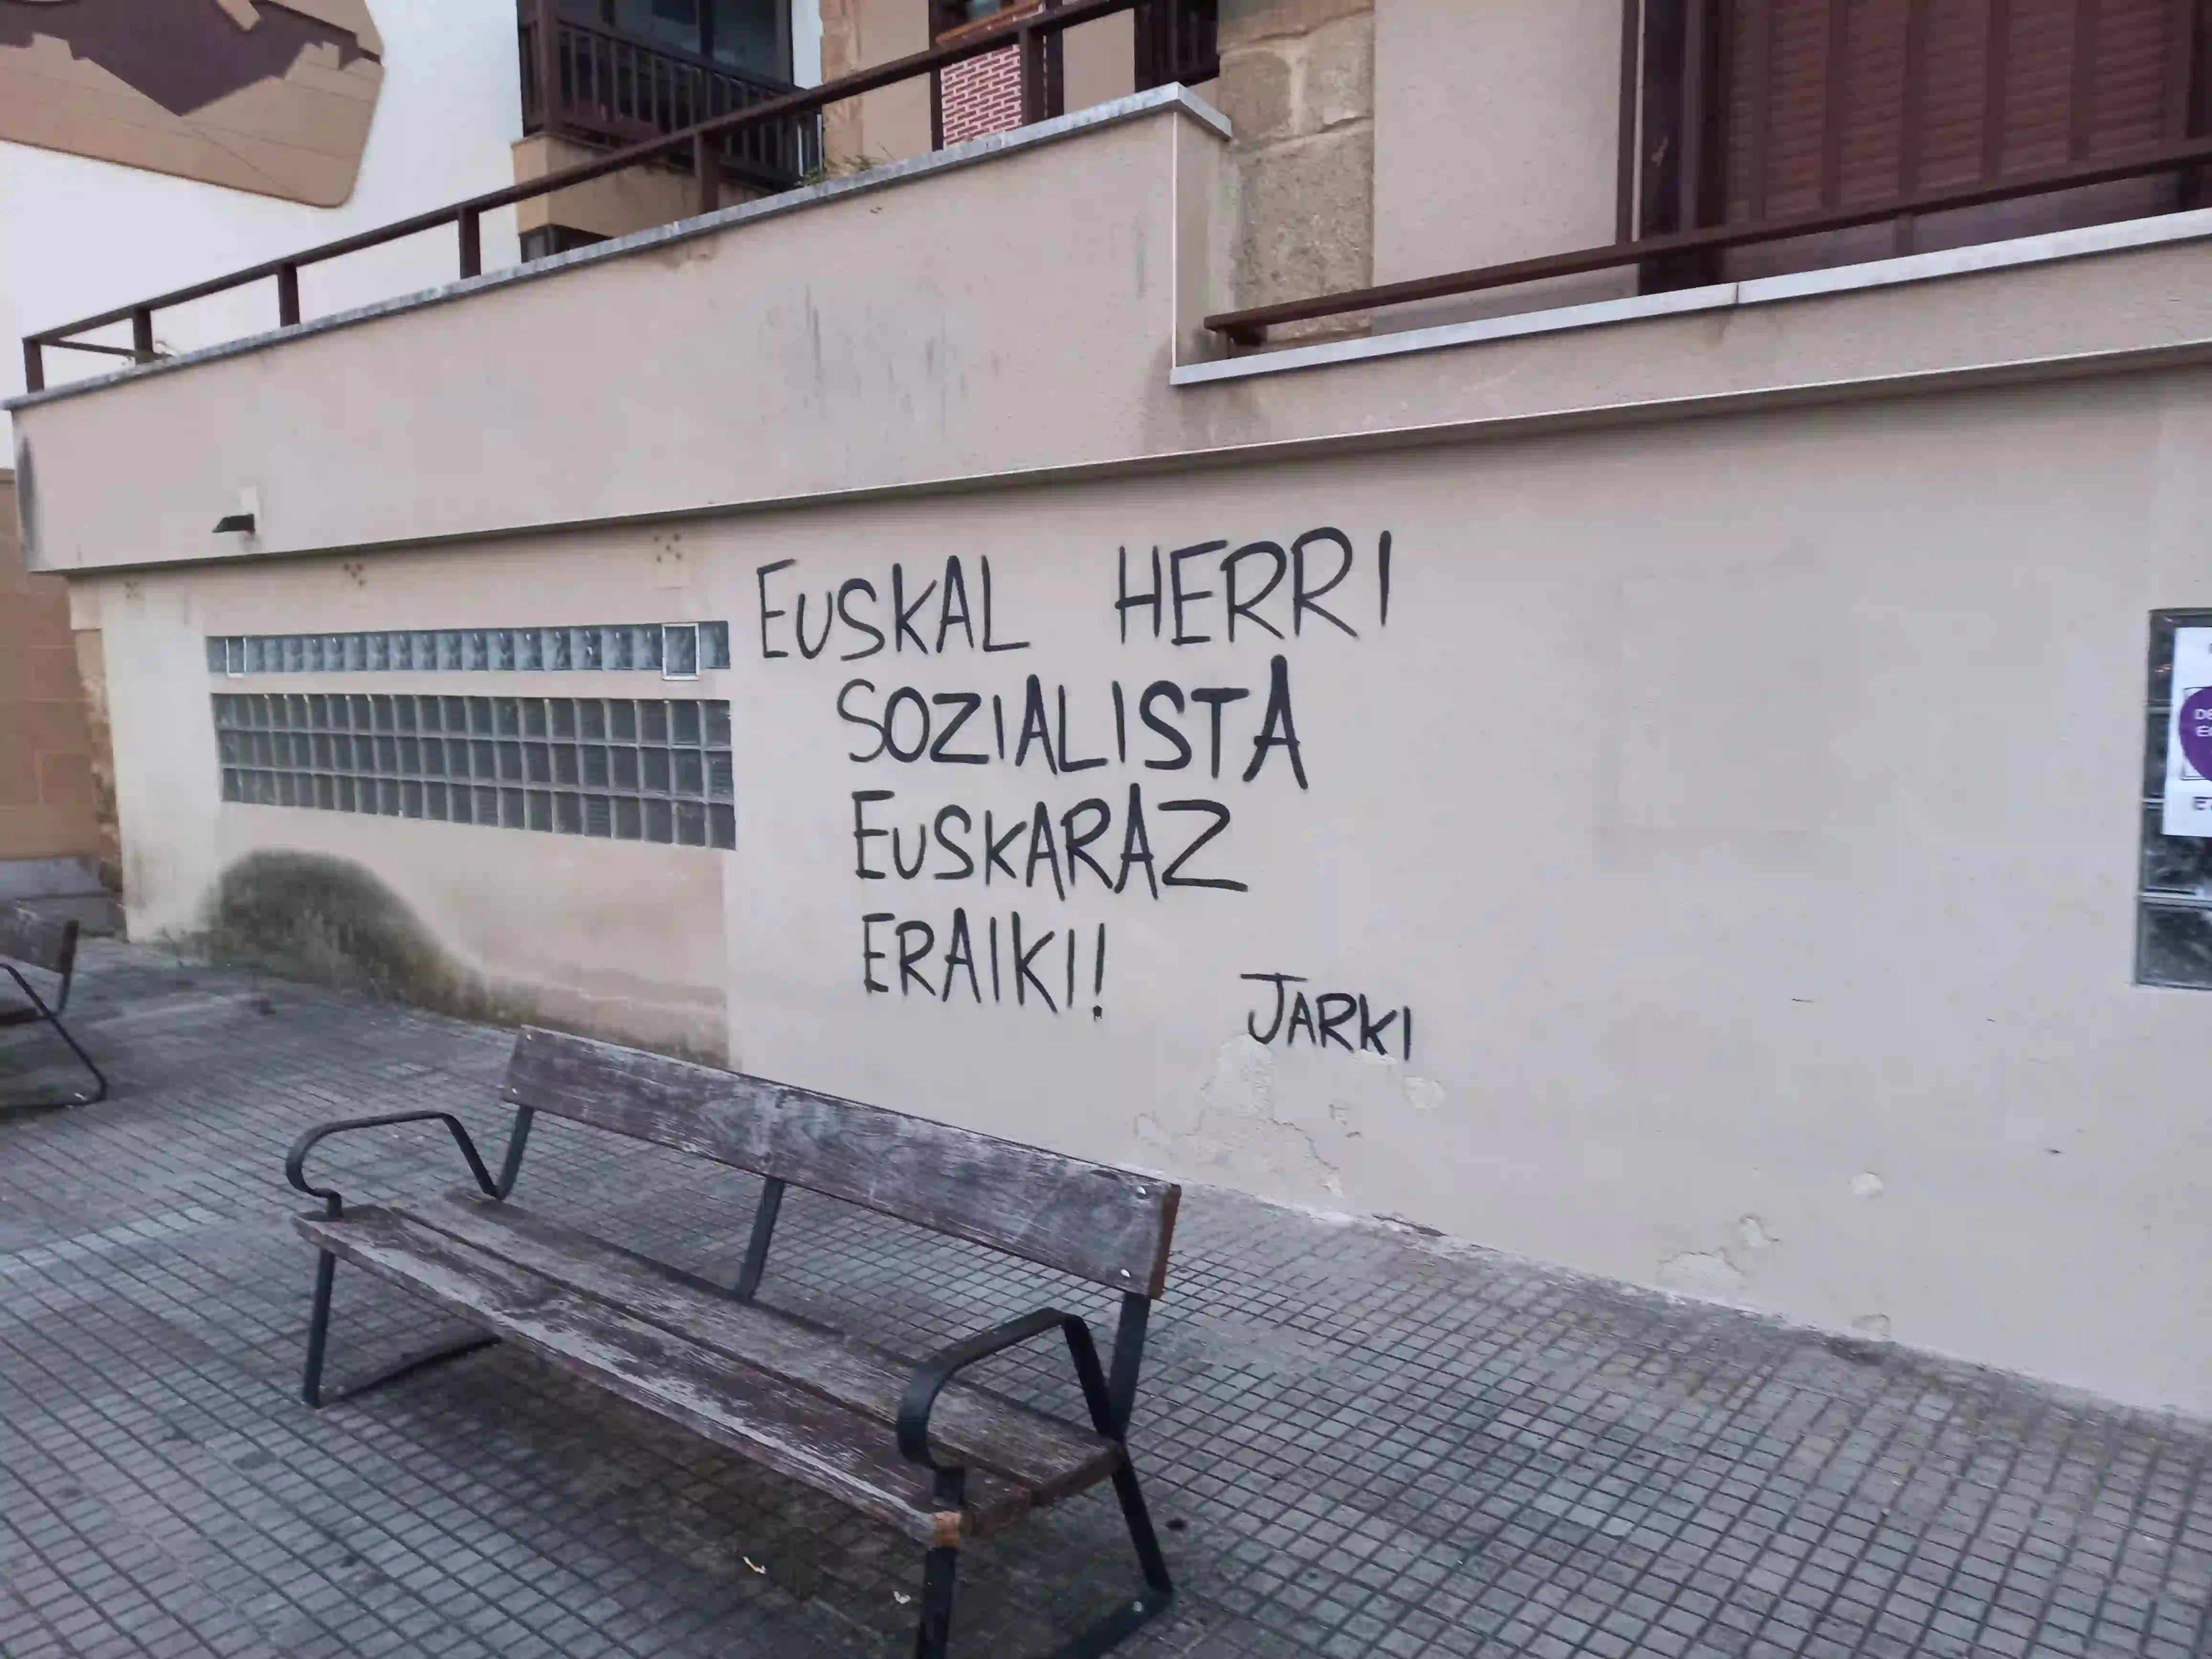 EUSKAL HERRI
SOZIALISTA
EUSKARAZ
ERAIKI!
JARKI